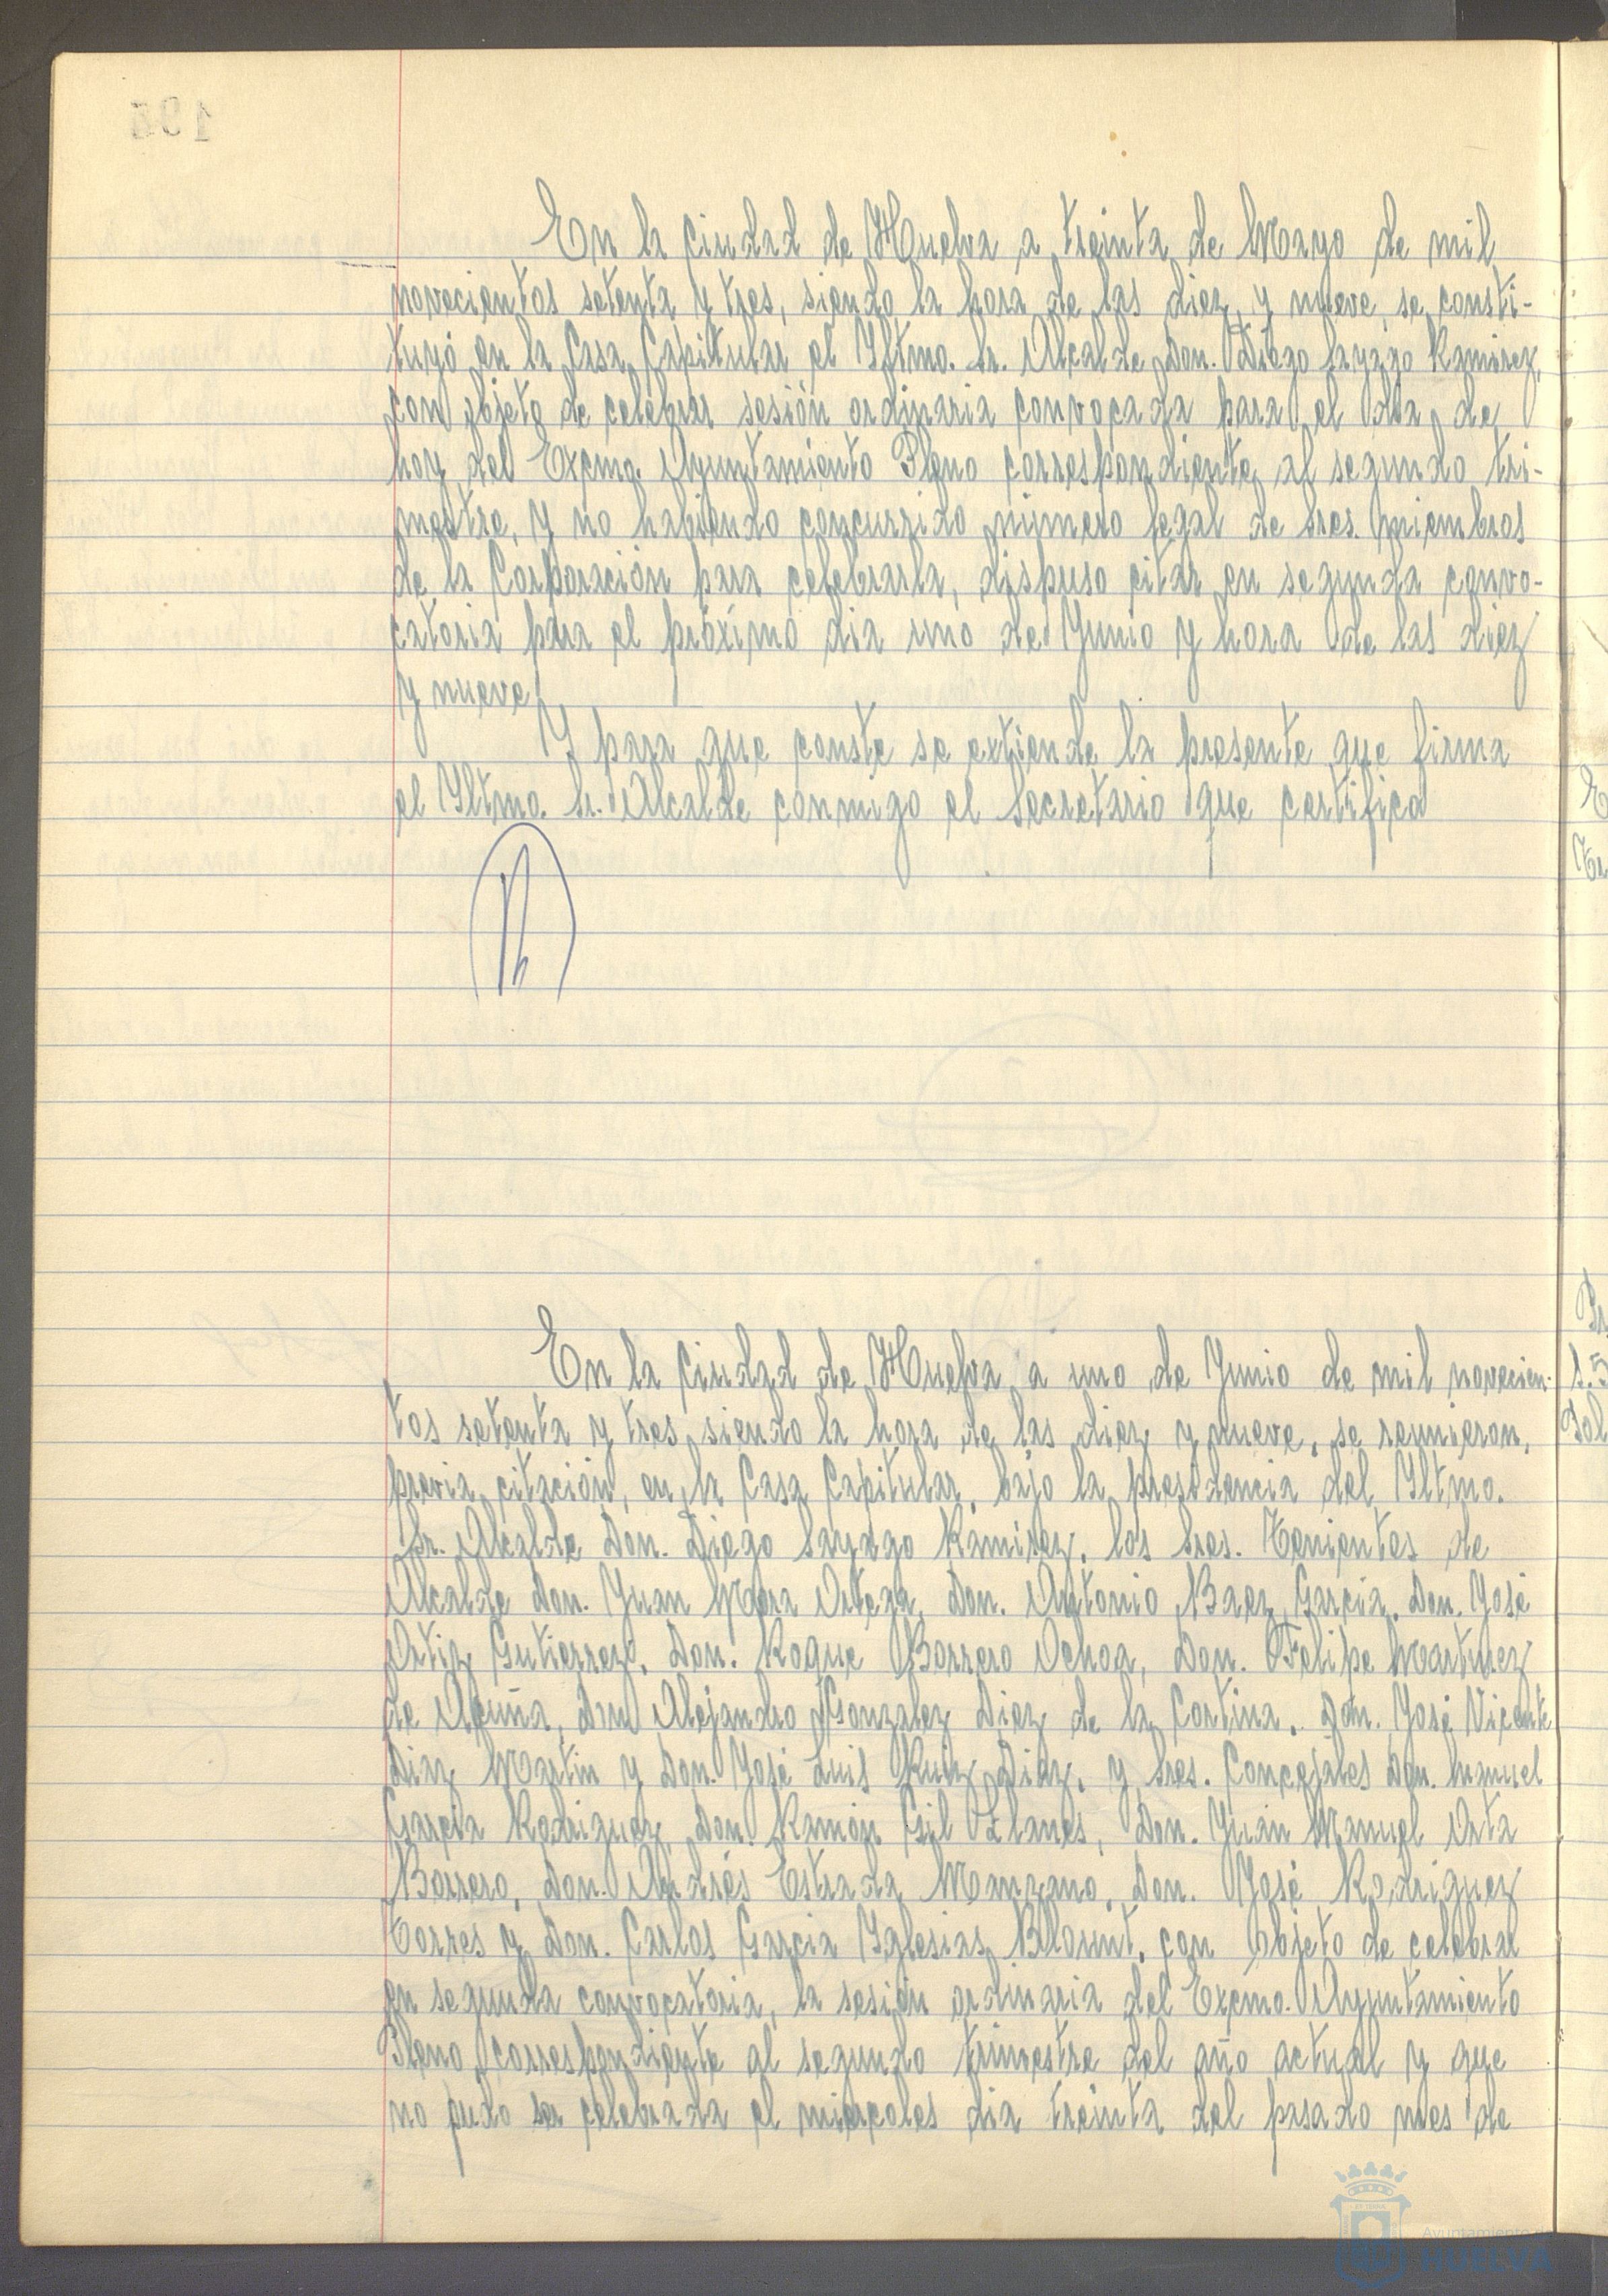 En la Ciudad de Huelva a treinta de Mayo de mil
novecientos setenta y tres, siendo la hora de las diez y nueve, se consti-
tuyó en la Casa Capitular el Yltmo. Sr. Alcalde Don. Diego Sayago Ramirez,
con objeto de celebrar sesión ordinaria convocada para el dia de
hoy del Excmo. Ayuntamiento Pleno correspondiente al segundo tri-
mestre, y no habiendo concurrido número legal de Sres. miembros
de la Corporación para celebrarla, dispuso citar en segunda convo-
catoria para el próximo dia uno de Junio y hora de las diez
y nueve.
Y para que conste se extiende la presente que firma
el Yltmo. Sr. Alcalde conmigo el Secretario que certifica
En la Ciudad de Huelva a uno de Junio de mil novecien-
tos setenta y tres, siendo la hora de las diez y nueve, se reunieron,
previa citación, en la Casa Capitular, bajo la presidencia del Yltmo.
Sr. Alcalde Don. Diego Sayago Ramirez, los Sres. Tenientes de
Alcalde Don. Juan Mora Ortega, Don. Antonio Baez Garcia, Don. José
Ortiz Gutierrez, Don. Roque Barrero Ochoa, Don. Felipe Martinez
de Acuña, Don Alejandro Gonzalez Diez de la Cortina, Don. José Vicente
Diaz Martin y Don. José Luis Ruiz Diaz, y Sres. Concejales Don. Manuel
Garcia Rodriguez, Don. Ramón Gil Llanes, Don. Juan Manuel Orta
Borrero, Don. Andrés Estrada Manzano, Don. José Rodriguez
Torres y Don. Carlos Garcia Yglesias Blount, con objeto de celebrar
en segunda convocatoria, la sesión ordinaria del Excmo. Ayuntamiento
Pleno correspondiente al segundo trimestre del año actual y que
no pudo ser celebrada el miercoles dia treinta del pasado mes de
Ayuntamiento de
HUELVA